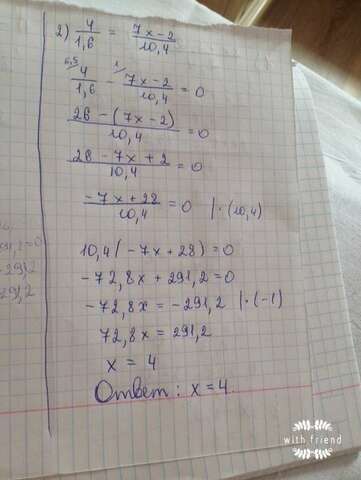 2) 4/1,6 = 7x-2/10,4
6,5/ 4/1,6 - 1/ 7x-2/10,4 = 0
26-(7x-2)/10,4 = 0
28-7x+2/10,4 = 0
-7x+28/10,4 = 0 |·(10,4)
10,4(-7x+28)=0
-72,8x+291,2=0
-72,8x=-291,2 |·(-1)
72,8x=291,2
x=4
Ответ: x=4.
with friend